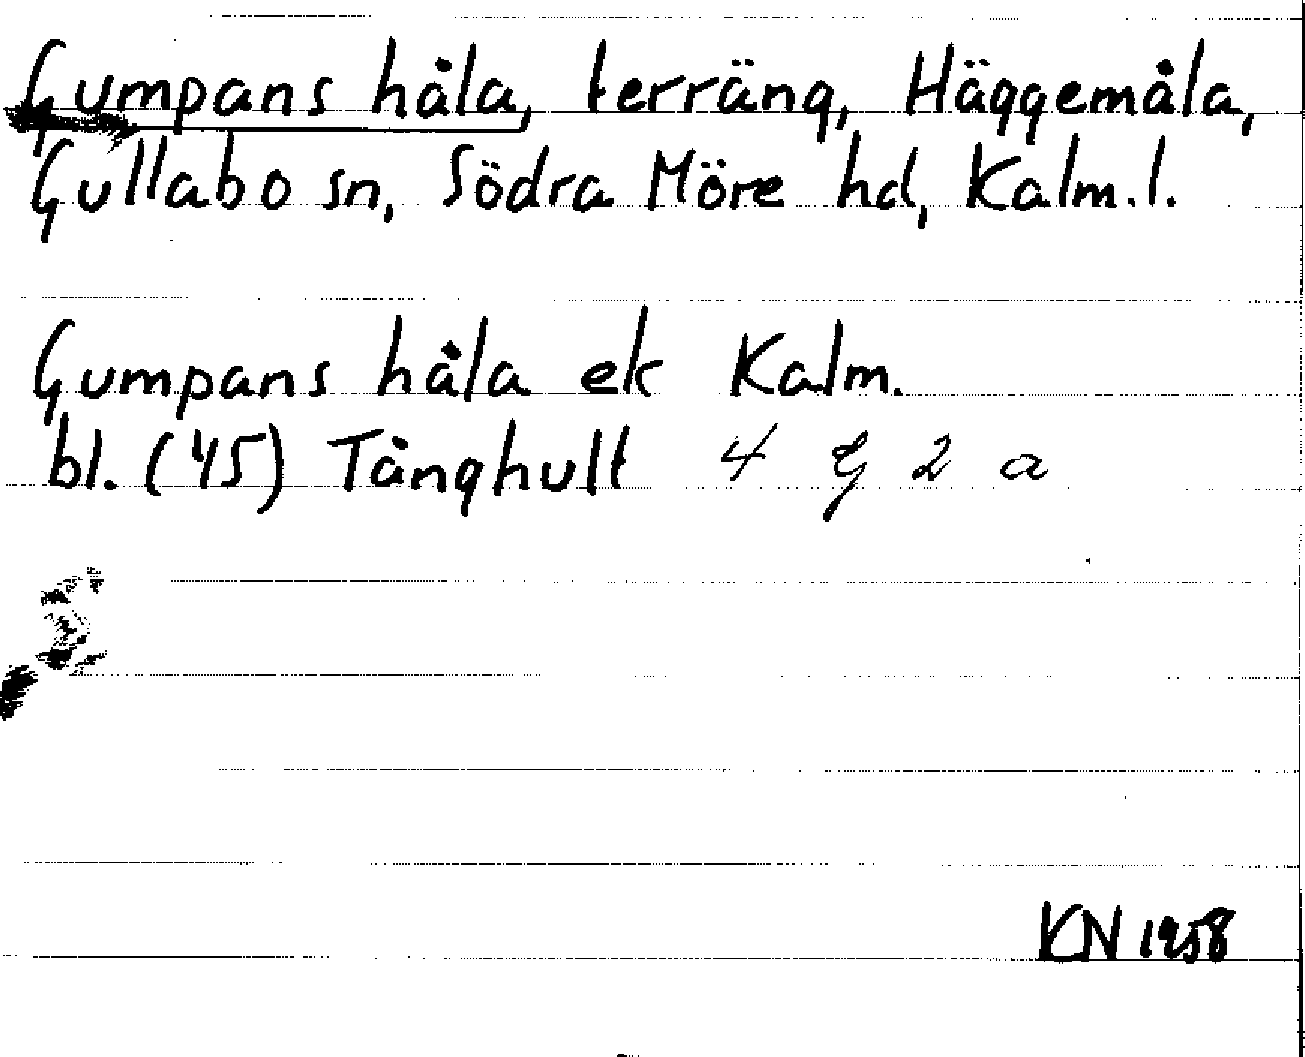 Gumpans håla, terräng, Häggemåla,
Gullabo sn, Södra Möre hd, Kalm.l.
Gumpans håla ek Kalm.
bl. (45) Tånghult 4 G 2 a
KN 1958